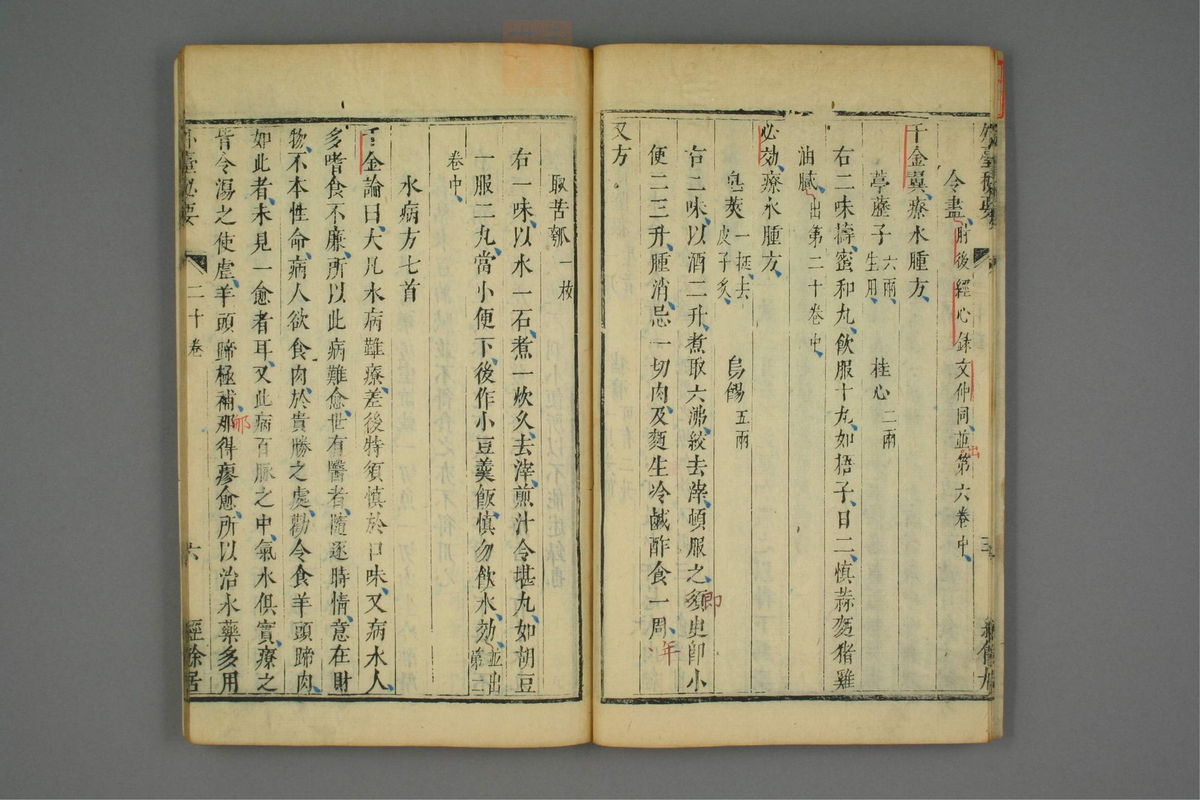 外臺秘要
令盡肘後經心錄文仲同並第六卷中
出
千金翼療水腫方
葶藶子六兩生用 桂心二兩
右二味擣蜜和丸飲服十丸如梧子日二慎蒜麪猪雞
油膩出第二十卷中
必效療水腫方
皂莢一挺去皮子炙 烏餳五兩
右二味以酒二升煮取六沸絞去滓頓服之須臾卽小
即
便二三升腫消忌一切肉及麪生冷鹹酢食一周
年
又方
取苦瓠一枚
右一味以水一石煮一炊久去滓煎汁令堪丸如胡豆
一服二丸當小便下後作小豆羹飯慎勿飲水効並出第二
卷中
水病方七首
千金論曰大凡水病難療差後特須慎於口味又病水人
多嗜食不廉所以此病難愈世有醫者隨逐時情意在財
物不本性命病人欲食肉於貴勝之處勸令食羊頭蹄肉
如此者未見一愈者耳又此病百脈之中氣水俱實療之
皆令瀉之使虛羊頭蹄極補那得瘳愈所以治水藥多用
那
外臺秘要 二十卷 六 經餘居